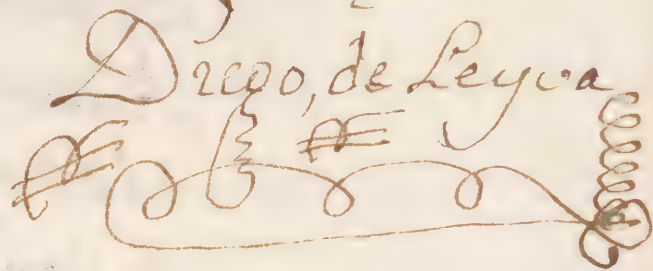 Diego, de Leyva